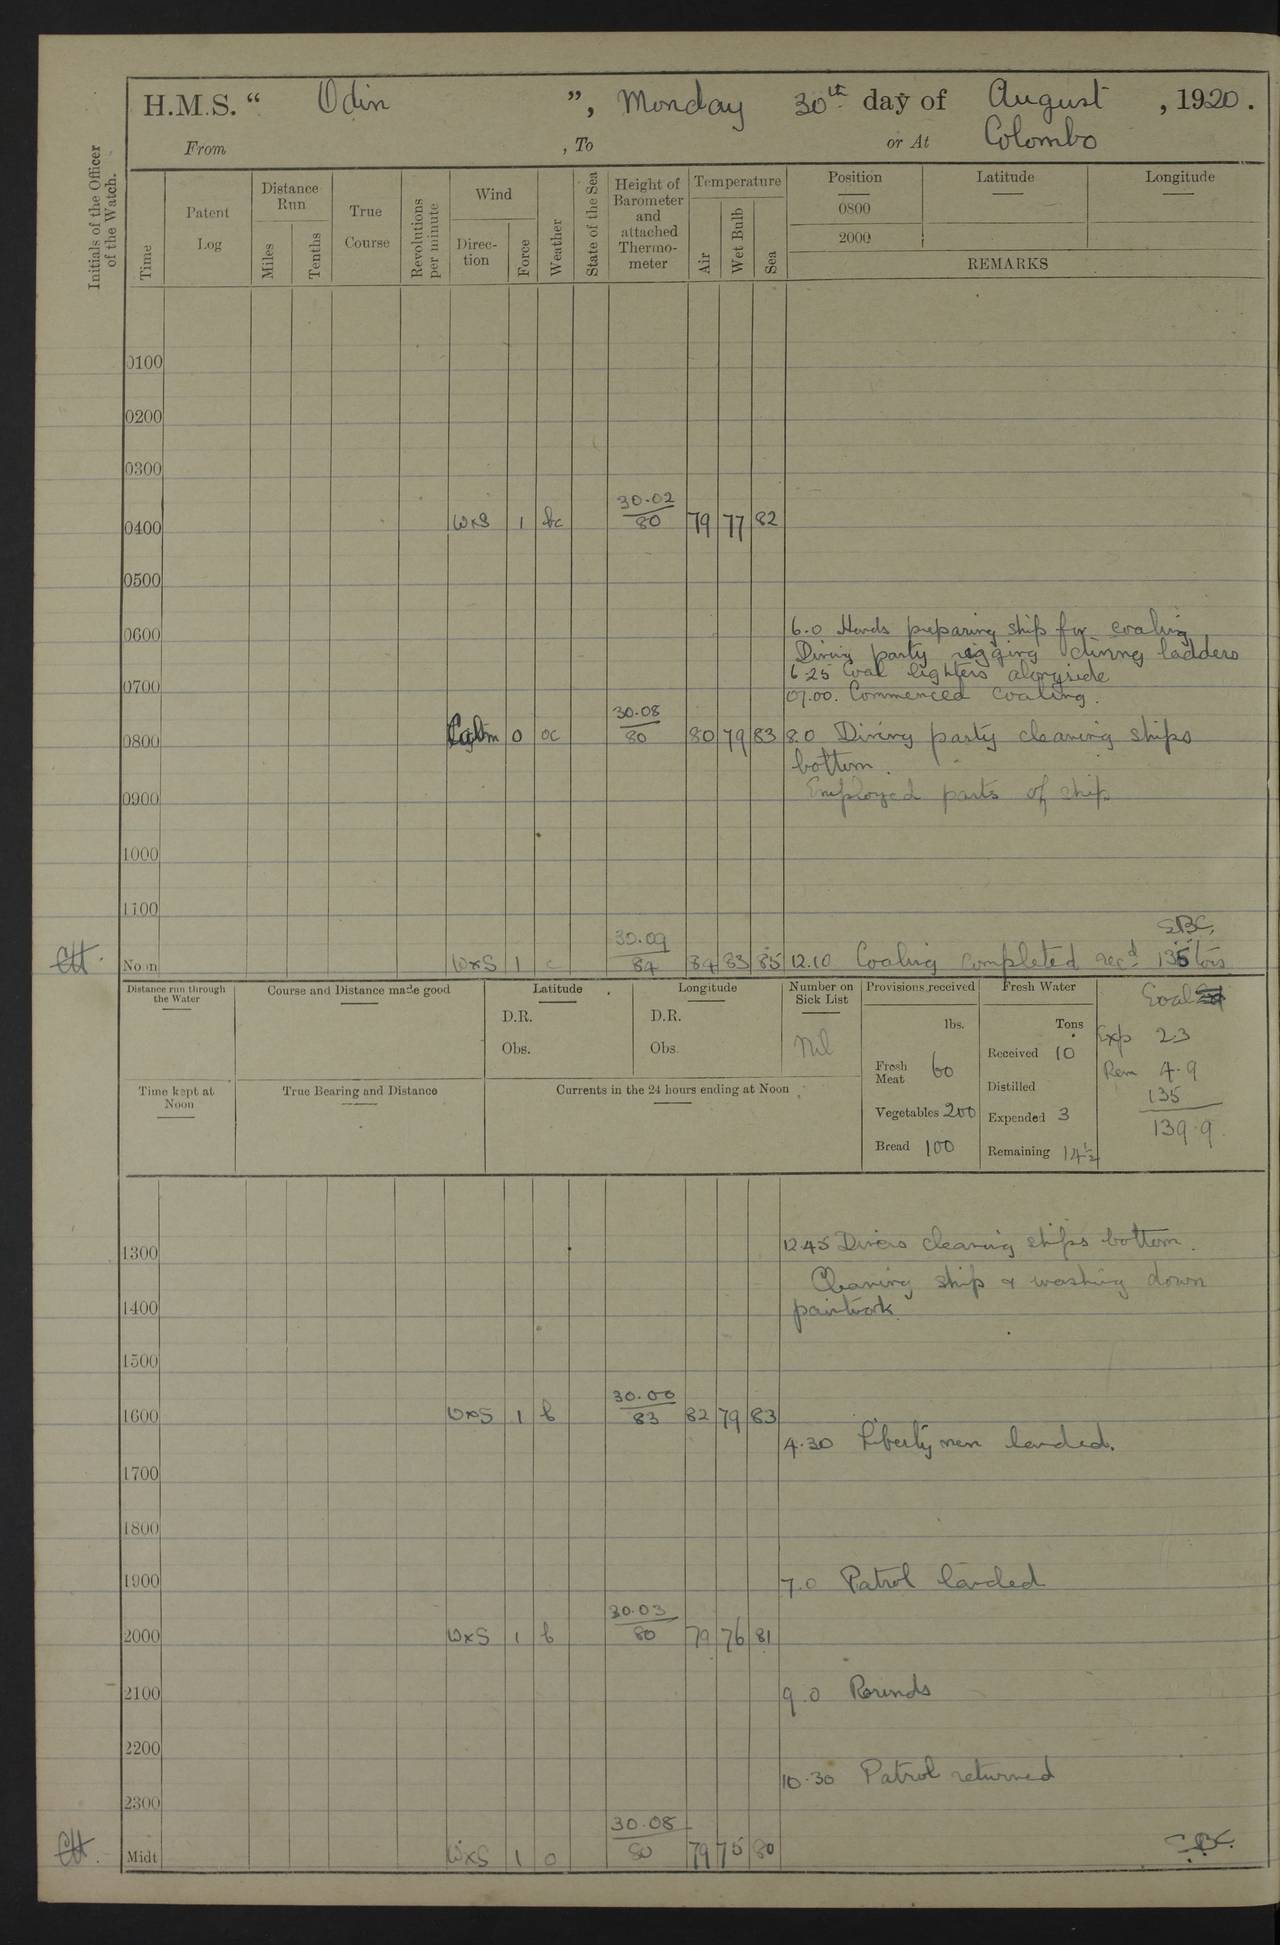 H.M.S. “ Odin ”, Monday 30th day of August , 1920.
From , To or At Colombo
Initials of the Officer of the Watch.
Time
Patent Log
Distance Run
Miles
Tenths
True Course
Revolutions per minute
Wind
Direc-tion
Force
Weather
State of the Sea
Height of Barometer and attached Thermo-meter
Temperature
Air
Wet Bulb
Sea
Position Latitude Longitude
0800
2000
REMARKS
0100
0200
0300
0400 WxS 1 bc 30.02/80 79 77 82
0500
6.0 Hands preparing ship for coaling
0600
Diving party rigging diving ladders
6.25 Coal lighters alongside
0700
07.00. Commenced coaling.
0800 Calm 0 oc 30.08/80 80 79 83 8.0 Diving party cleaning ships
bottom.
Employed parts of ship
0900
1000
1100
SBC.
Noon WxS 1 c 30.09/84 84 83 85 12.10 Coaling completed recd 135 tons
Distance run through the Water
Course and Distance made good
Latitude
D.R.
Obs.
Longitude
D.R.
Obs.
Number on Sick List
Nil
Provisions received
lbs.
Fresh Meat 60
Vegetables 200
Bread 100
Fresh Water
Tons
Received 10
Distilled
Expended 3
Remaining 14½
Coal
Exp 2.3
Rem 4.9
135
139.9
Time kept at Noon
True Bearing and Distance
Currents in the 24 hours ending at Noon
12.45 Divers cleaning ships bottom.
1300
Cleaning ship & washing down
1400
paintwork
1500
1600 WxS 1 b 30.00/83 82 79 83
4.30 Liberty men landed.
1700
1800
1900 7.0 Patrol landed
2000 WxS 1 b 30.03/80 79 76 81
2100 9.0 Rounds
2200
10.30 Patrol returned
2300
Midt WxS 1 o 30.08/80 79 75 80
S.B.C.